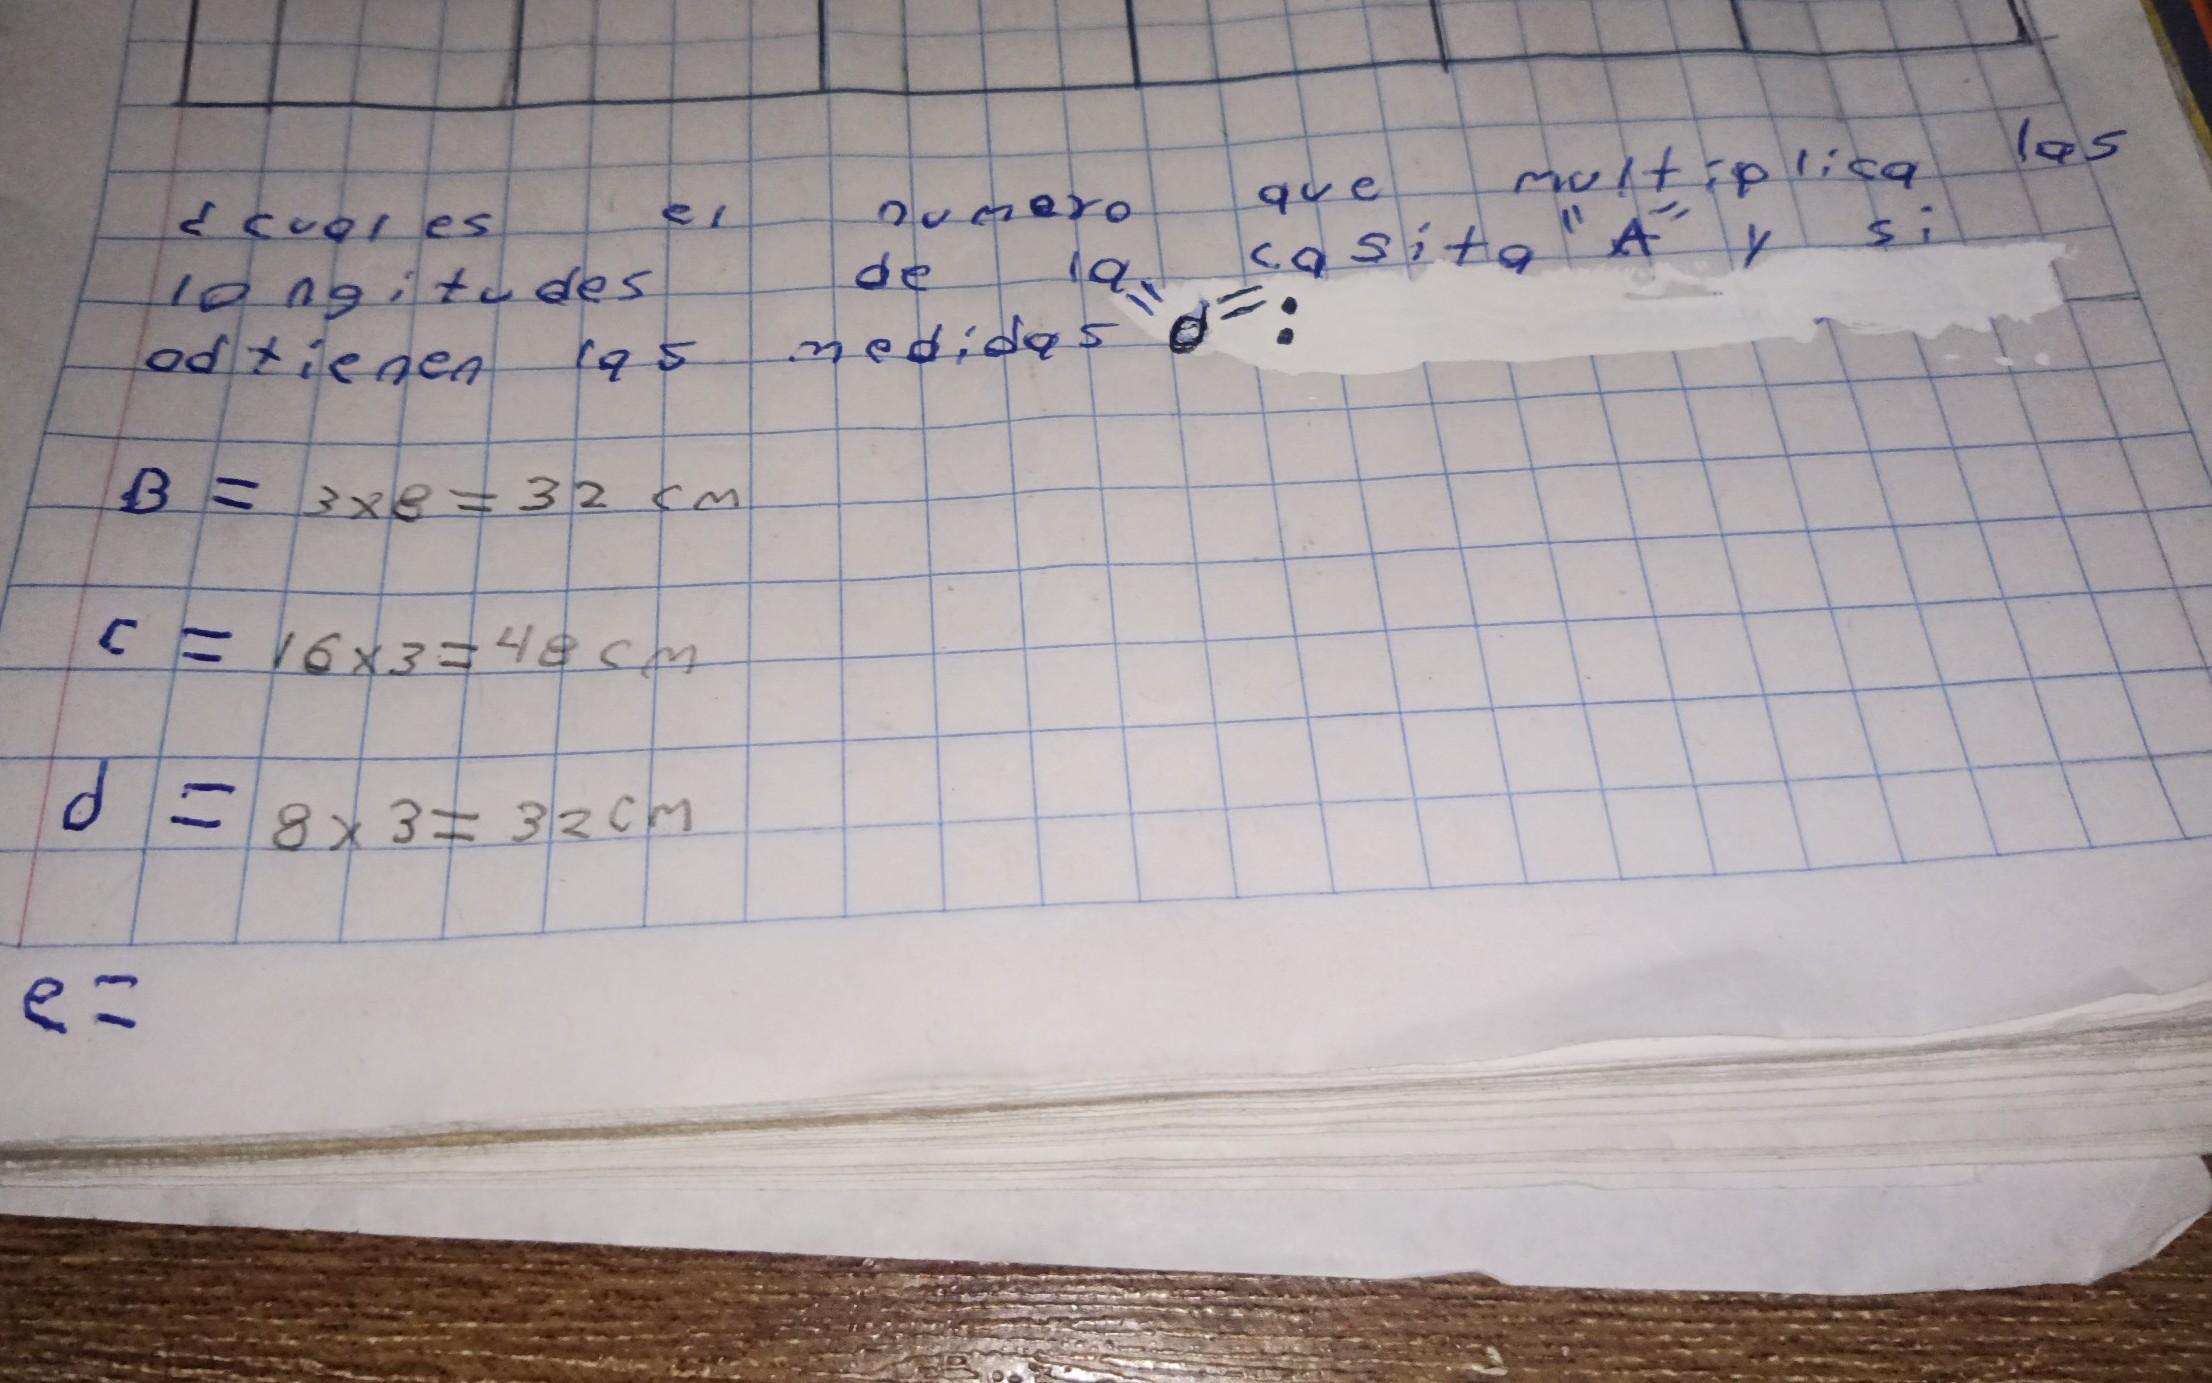 ¿cual es el numero que multiplica las
longitudes de la casita "A" y si
odtienen las medidas "d":
B = 3x8=32 cm
c = 16x3=48cm
d = 8x3=32cm
e=